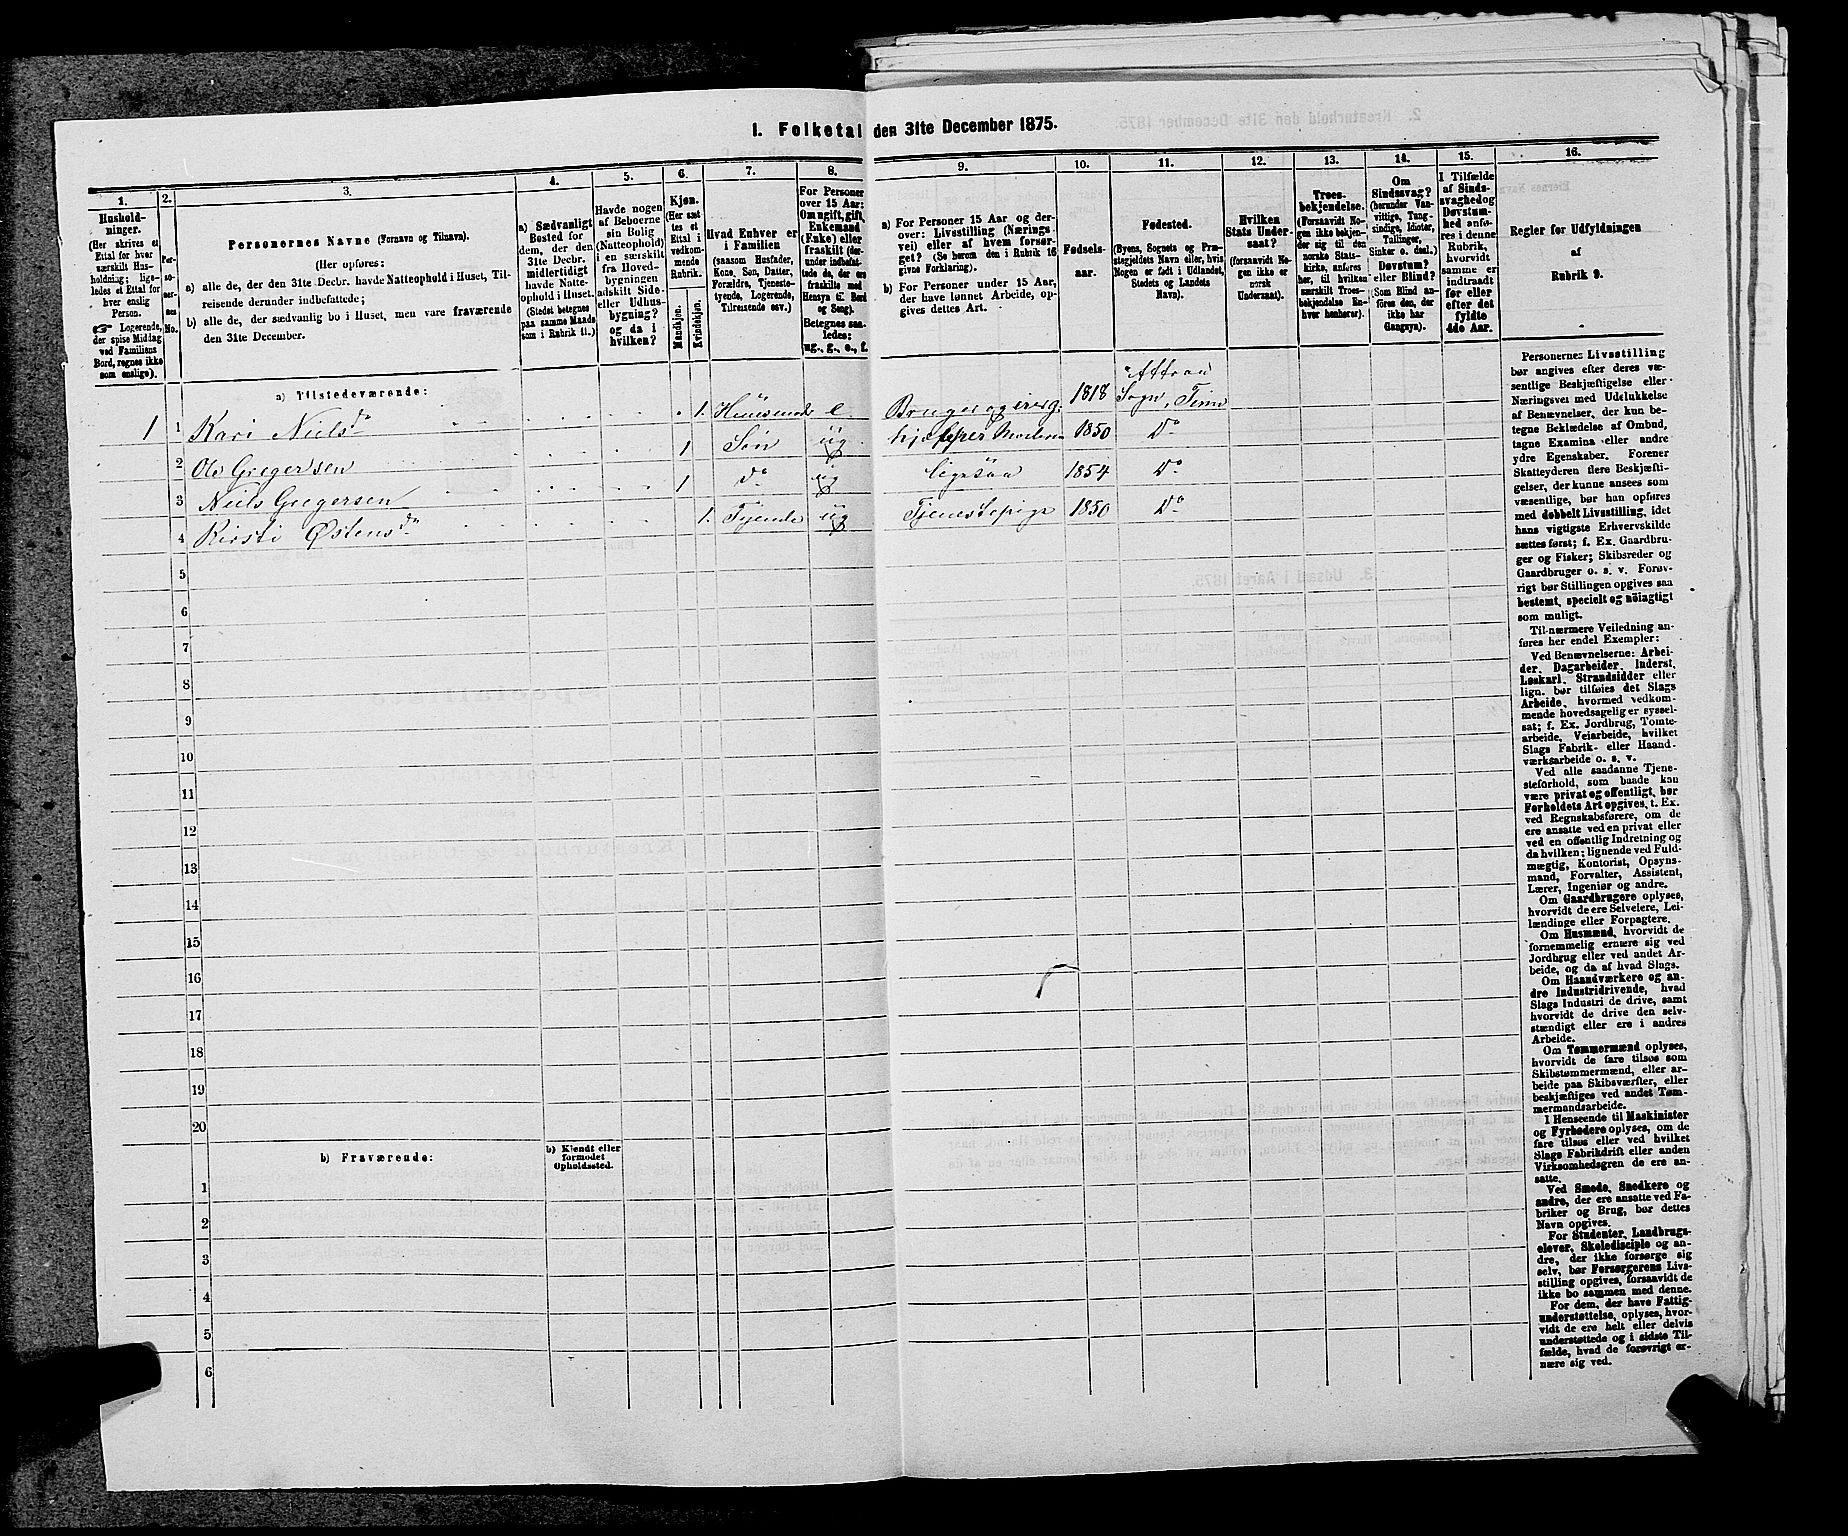 1. Folketal den 31te December 1875.
1.
Hushold-
ninger.
(Her skrives et
Ettal for hver
særskilt Hus-
holdning; lige-
ledes et Ettal for
hver enslig
Person.
Logerende,
der spise Middag
ved Familiens
Bord, regnes ikke
som enslige).
2.
Per-
so-
ner-
nes
No.
3.
Personernes Navne (Fornavn og Tilnavn).
(Her opføres:
a) alle de, der den 31te Decbr. havde Natteophold i Huset, Til-
reisende derunder indbefattede;
b) alle de, der sædvanlig bo i Huset, men vare fraværende
den 31te December.
4.
a) Sædvanligt
Bosted for
dem, der den
31te Decbr.
midlertidigt
havde Natte-
ophold i Huset.
(Stedet betegnes
paa samme Maade
som i Rubrik 11.)
5.
Havde nogen
af Beboerne
sin Bolig
(Natteophold)
i en særskilt
fra Hoved-
bygningen
adskilt Side-
eller Udhus-
bygning?
og da i
hvilken?
6.
Kjøn.
(Her sæt
tes et
Ettal i
vedkom-
mende
Rubrik.
Mandkjøn.
Kvindekjøn.
7.
Hvad Enhver er
i Familien
(saasom Husfader,
Kone, Søn, Datter,
Forældre, Tjeneste-
tyende, Logerende,
Tilreisende osv.)
8.
For Personer
over 15 Aar:
Om ugift, gift,
Enkemand
(Enke) eller
fraskilt (der-
under indbefat-
tede de, der ere
fraskilte med
Hensyn til Bord
og Seng).
Betegnes saa-
ledes:
ug., g., e., f.
9.
a) For Personer 15 Aar og der-
over: Livsstilling (Nærings-
vei) eller af hvem forsør-
get? (Se herom den i Rubrik 16
givne Forklaring).
b) For Personer under 15 Aar,
der have lønnet Arbeide, op-
gives dettes Art.
10.
Fødsels-
aar.
11.
Fødested.
(Byens, Sognets og Præ-
stegjeldets Navn eller, hvis
Nogen er født i Udlandet,
Stedets og Landets
Navn).
12.
Hvilken
Stats Under-
saat?
(forsaavidt No-
gen ikke er
norsk
Undersaat).
13.
Troes-
bekjendelse.
(Forsaavidt No-
gen ikke bekjen-
der sig til den
norske Stats-
kirke, anføres
her, til hvilken
særskilt Troes-
bekjendelse En-
hver henhører).
14.
Om
Sindssvag?
(herunder Van-
vittige, Tung-
sindige, Idioter,
Tullinger,
Sinker o. desl.)
Døvstum?
eller Blind?
(Som Blind an-
føres den, der
ikke har
Gangsyn).
15.
I Tilfælde
af Sinds-
svaghed og
Døvstum-
hed anfø-
res i denne
Rubrik,
hvorvidt
samme er
indtraadt
før eller
efter det
fyldte
4de Aar.
16.
Regler for Udfyldningen
af
Rubrik 9.
a) Tilstedeværende:
1 1 Kari Nielsd. 1. Huusmode e. Bruger og 1818 Attraa Sogn, Tinn
2 Ole Gregersen 1 Søn ug hjælper Moderen 1850 Do
3 Niels Gregersen 1 do ug ligesaa 1854 Do
4 Kirsti Østensdr 1. Tjende ug Tjenestepige 1850 Do
5
6
7
8
9
10
11
12
13
14
15
16
17
18
19
20
b) Fraværende:
b) Kjendt eller
formodet
Opholdssted.
1
2
3
4
5
6
Personernes Livsstilling
bør angives efter deres væ-
sentlige Beskjæftigelse eller
Næringsvei med Udelukkelse
af Benævnelser, der kun be-
tegne Beklædelse af Ombud,
tagne Examina eller andre
ydre Egenskaber. Forener
Skatteyderen flere Beskjæfti-
gelser, der kunne ansees som
væsentlige, bør han opføres
med dobbelt Livsstilling, idet
hans vigtigste Erhvervskilde
sættes først; f. Ex. Gaardbru-
ger og Fisker; Skibsreder og
Gaardbruger o. s. v. Forøv-
rigt bør Stillingen opgives saa
bestemt, specielt og nöiagtigt
som muligt.
Til nærmere Veiledning an-
føres her endel Exempler:
Ved Benævnelserne: Arbei-
der, Dagarbeider, Inderst,
Løskarl, Strandsidder eller
lign. bør tilføies det Slags
Arbeide, hvormed vedkom-
mende hovedsagelig er syssel-
sat; f. Ex. Jordbrug, Tomte-
arbeide, Veiarbeide, hvilket
Slags Fabrik- eller Haand-
værksarbeide o. s. v.
Ved alle saadanne Tjene-
steforhold, som baade kan
være privat og offentligt, bør
Forholdets Art opgives, t. Ex.
ved Regnskabsførere, om de
ere ansatte ved en privat eller
ved en offentlig Indretning og
da hvilken; lignende ved Fuld-
mægtig, Kontorist, Opsyns-
mand, Forvalter, Assistent,
Lærer, Ingeniør og andre.
Om Gaardbrugere oplyses,
hvorvidt de ere Selveiere, Lei-
lændinge eller Forpagtere.
Om Husmænd, hvorvidt de
fornemmelig ernære sig ved
Jordbrug eller ved andet Ar-
beide, og da af hvad Slags.
Om Haandværkere og an-
dre Industridrivende, hvad
Slags Industri de drive, samt
hvorvidt de drive den selv-
stændigt eller ere i andres
Arbeide.
Om Tømmermænd oplyses,
hvorvidt de fare tilsøs som
Skibstømmermænd, eller ar-
beide paa Skibsværfter, eller
beskjæftiges ved andet Tøm-
mermandsarbeide.
I Henseende til Maskinister
og Fyrbødere oplyses, om de
fare tilsøs eller ved hvilket
Slags Fabrikdrift eller anden
Virksomhedsgren de ere an-
satte.
Ved Smede, Snedkere og
andre, der ere ansatte ved Fa-
briker og Brug, bør dettes
Navn opgives.
For Studenter, Landbrugs-
elever, Skoledisciple og an-
dre, der ikke forsørge sig
selv, bør Forsørgerens Livs-
stilling opgives, forsaavidt de
ikke bo sammen med denne.
For dem, der have Fattig-
understøttelse, oplyses, hvor-
vidt de ere helt eller delvis
understøttede og i sidste Til-
fælde, hvad de forøvrigt er-
nære sig ved.